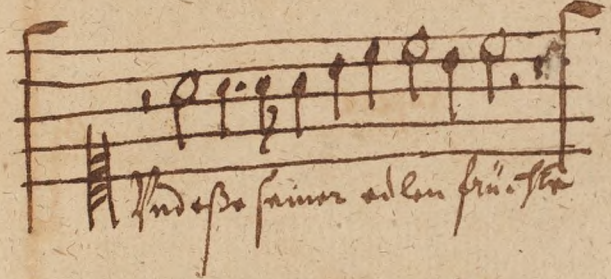 Vnd eße seiner edlen früchte